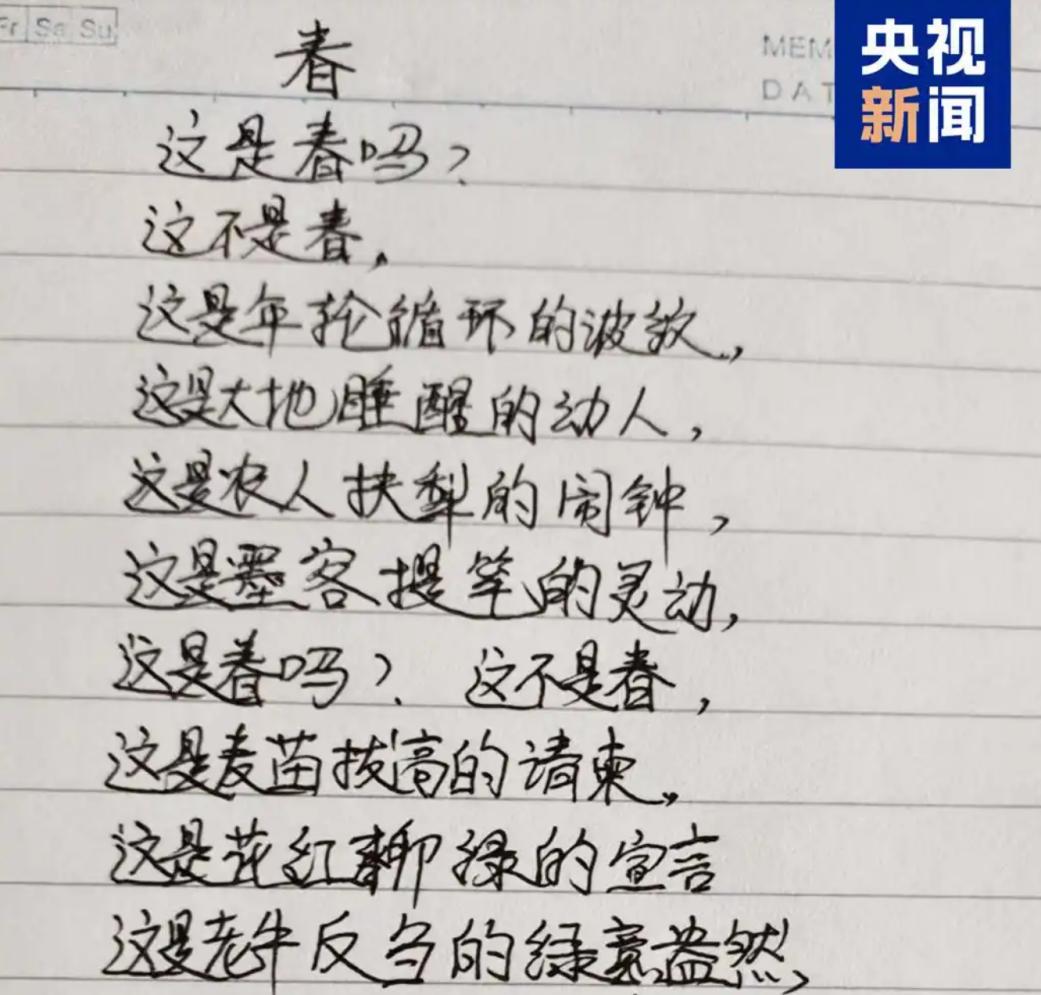 Fr Sa Su
MEM
DAT
央视
新闻
春
这是春吗?
这不是春,
这是年轮循环的波纹,
这是大地睡醒的动人,
这是农人扶犁的闹钟,
这是墨客提笔的灵动,
这是春吗? 这不是春,
这是麦苗拔高的请柬,
这是花红柳绿的宣言
这是老牛反刍的绿意盎然,